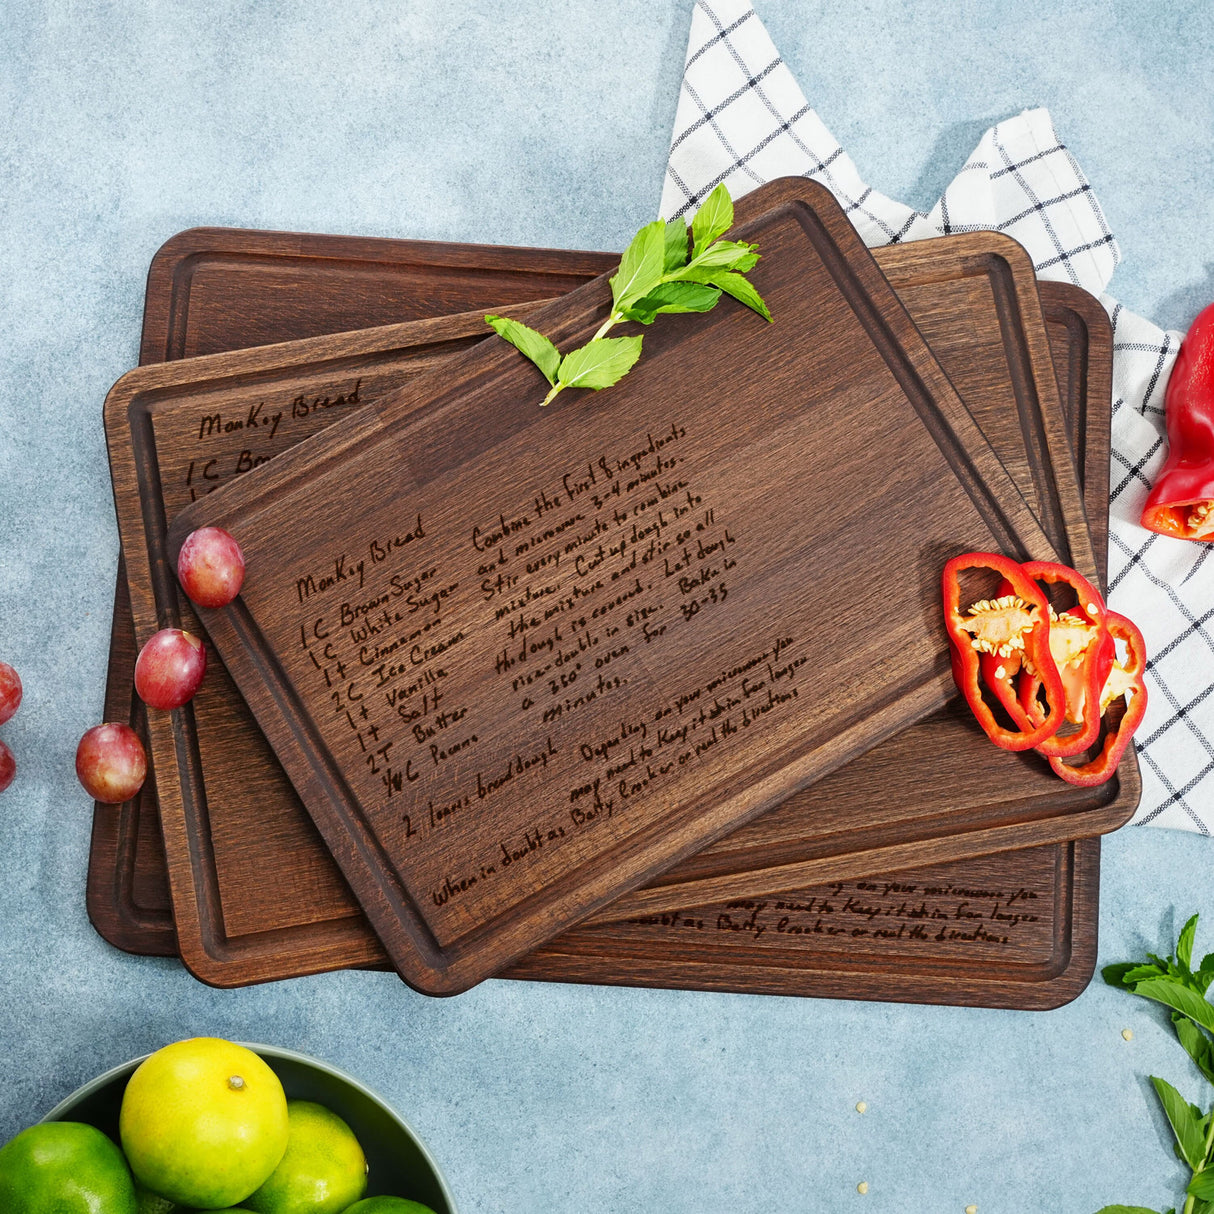 Monkey Bread
1 C Br
Monkey Bread
1 C Brown Sugar
1 C White Sugar
1 t Cinnamon
2 C Ice Cream
1 t Vanilla
1 t Salt
2 T Butter
C Pecans
2 loaves bread dough
Combine the first 8 ingredients
and microwave 3-4 minutes.
Stir every minute to combine
mixture. Cut up dough into
the mixture and stir so all
the dough is covered. Let dough
rise double in size. Bake in
a 350° oven for 30-35
minutes.
Depending on your microwave you
may need to Keep it at in for longer
When in doubt as Betty Crocker or read the directions
on your microwave you
may need to Keep it at in for longer
doubt as Betty Crocker or read the directions